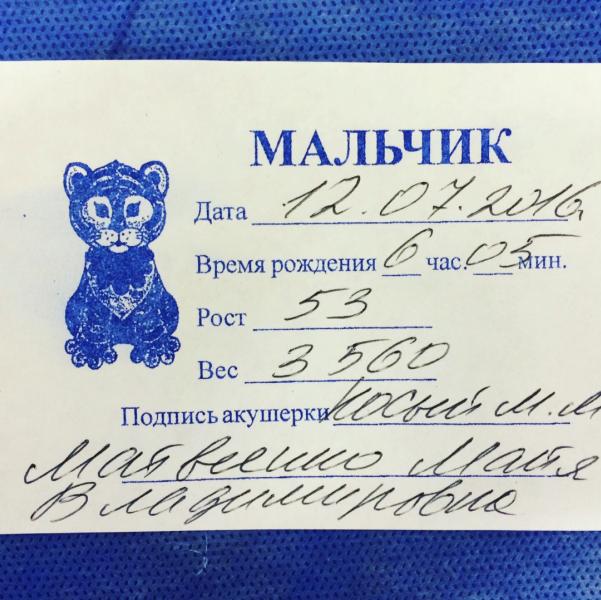 МАЛЬЧИК
Дата 12.07.2016г
Время рождения 6 час. 05 мин.
Рост 53
Вес 3560
Подпись акушерки Косый М.М
Матвеенко Майя
Владимировна